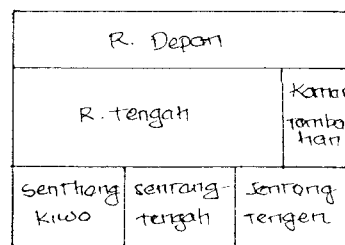 R. Depan
R. tengah
Kamar
tamba
han
senthong
kiwo
sentong-
tengah
sentong
tengen